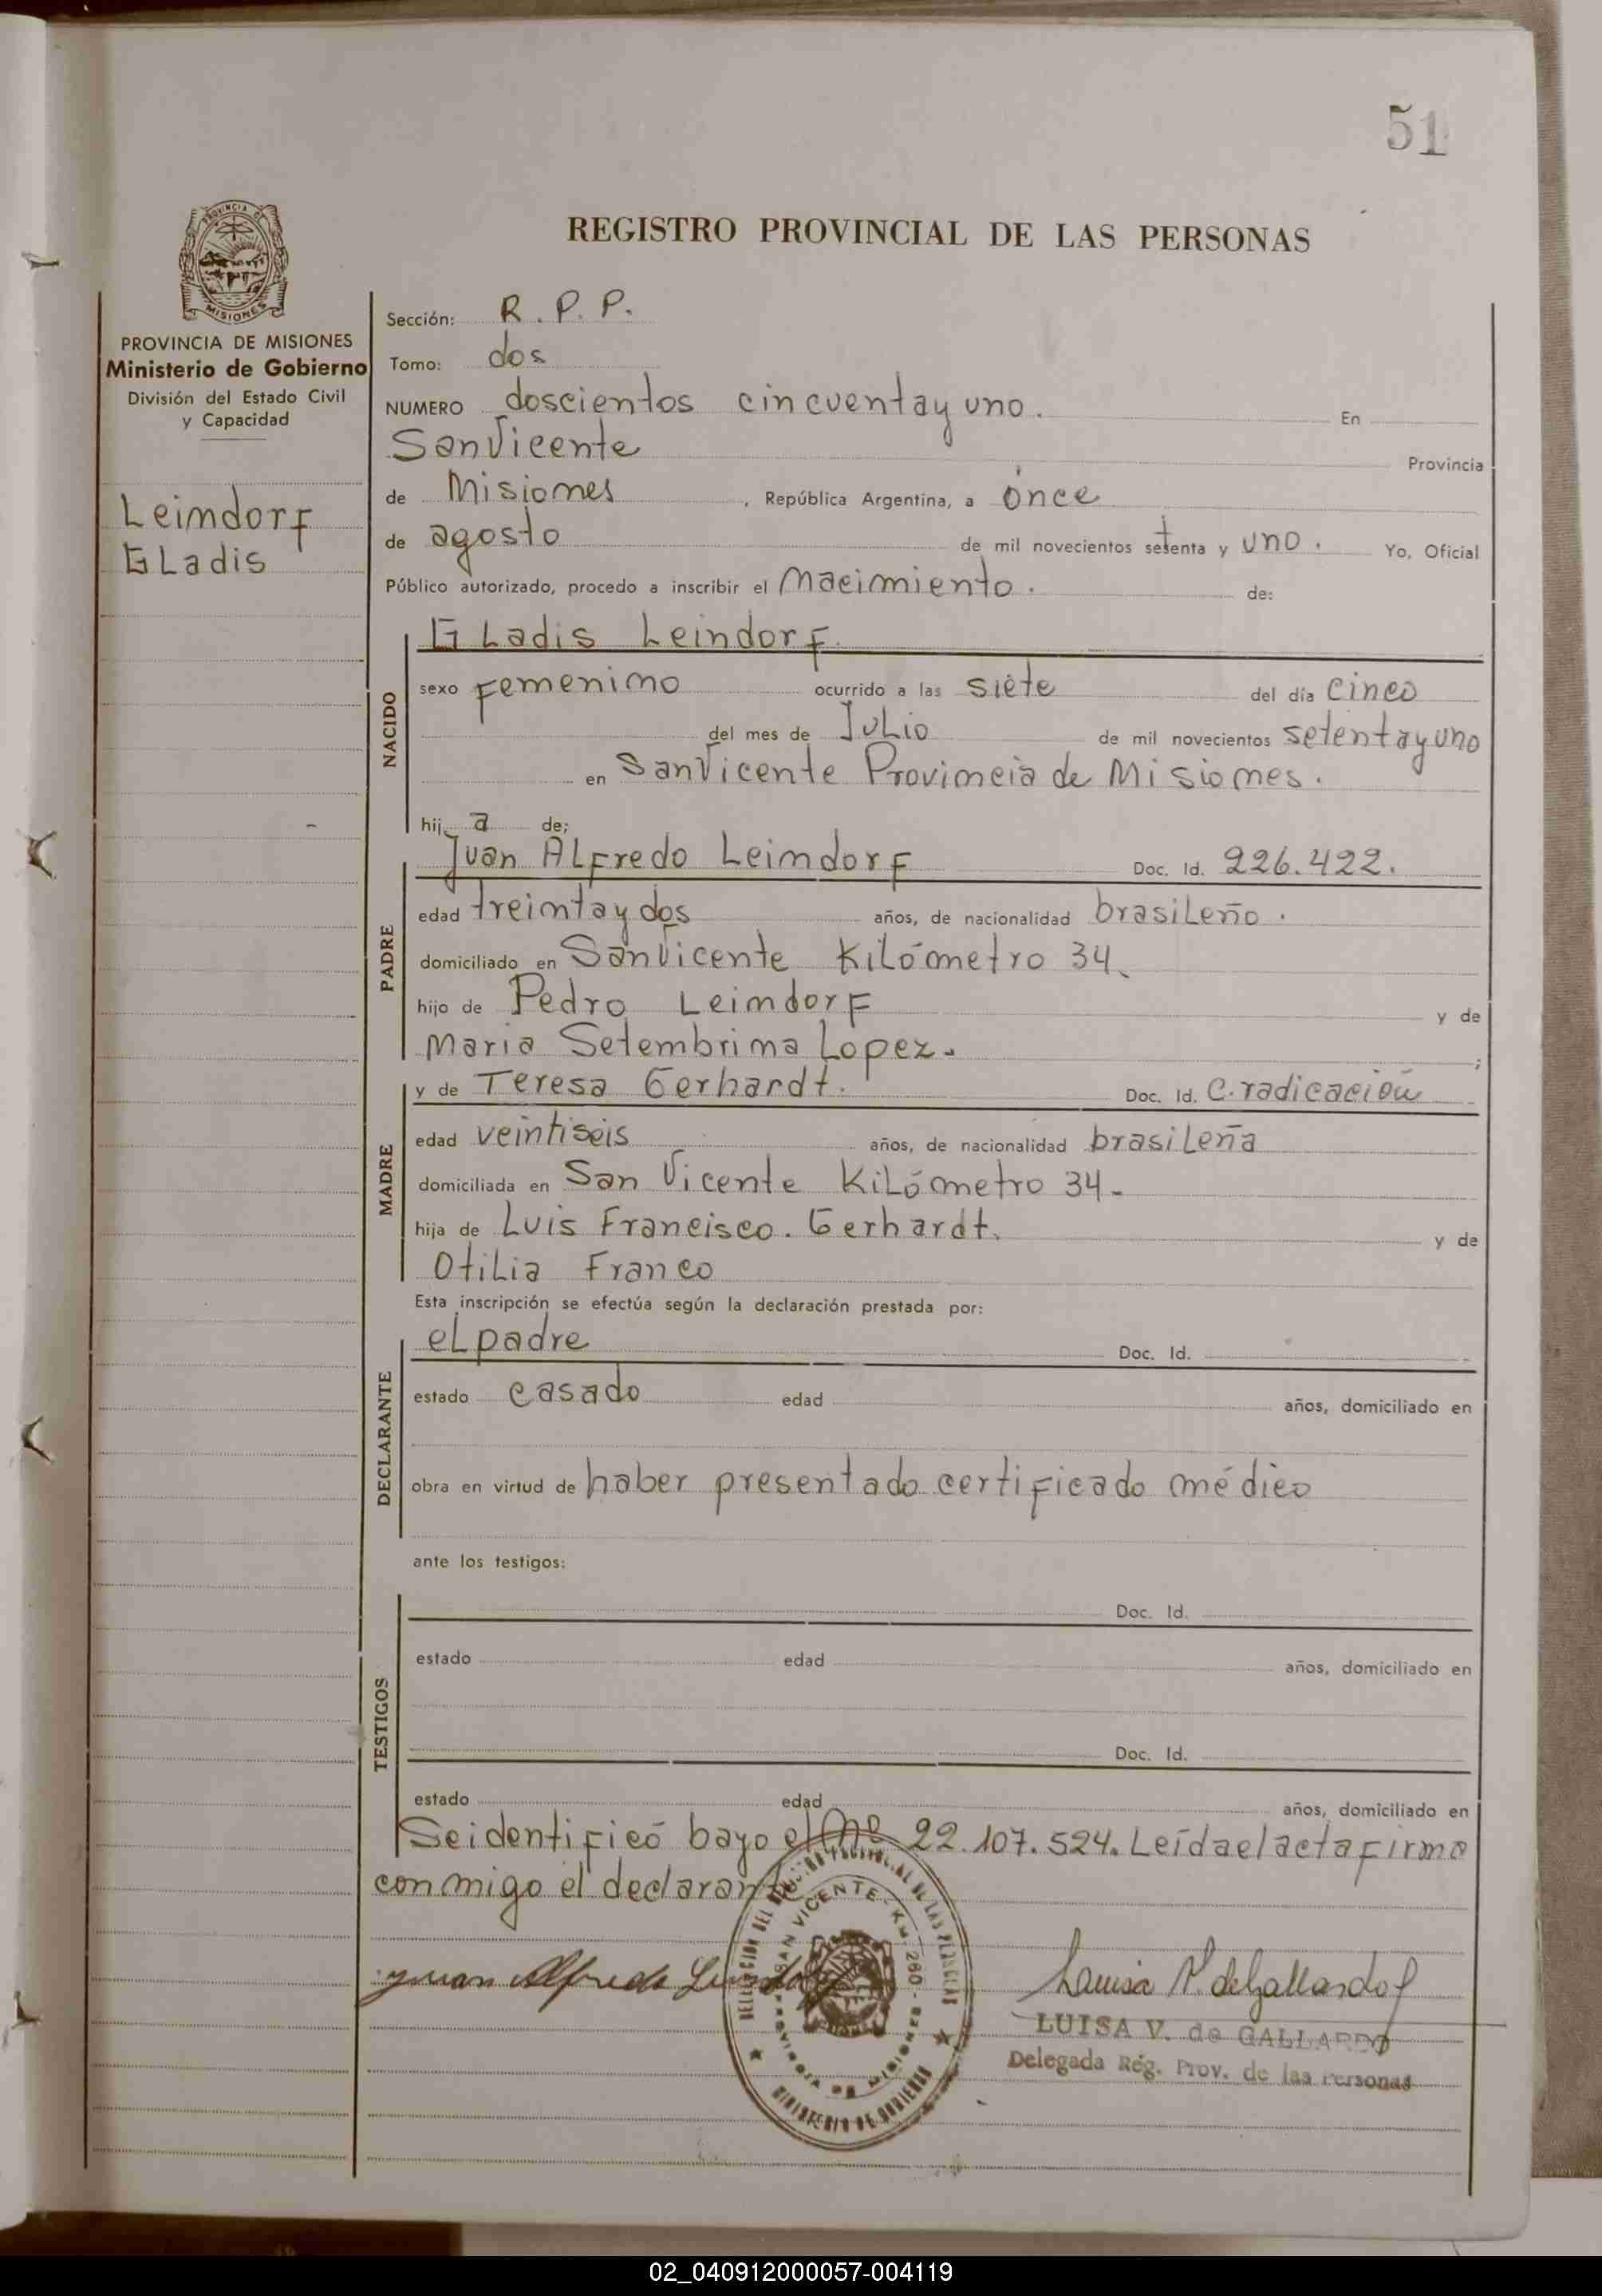 51
PROVINCIA DE
MISIONES
REGISTRO PROVINCIAL DE LAS PERSONAS
PROVINCIA DE MISIONES
Ministerio de Gobierno
División del Estado Civil
y Capacidad
Leimdorf
GLadis
Sección: R. P. P.
Tomo: dos
NUMERO doscientos cincuentay uno. En
San Vicente Provincia
de Misiones, República Argentina, a once
de agosto de mil novecientos setenta y uno. Yo, Oficial
Público autorizado, procedo a inscribir el Nacimiento. de:
NACIDO
GLadis Leindorf.
sexo femenino ocurrido a las siete del día cinco
del mes de Julio de mil novecientos setentayuno
en San Vicente Provincia de Misiones.
hija de;
PADRE
Juan Alfredo Leimdorf Doc. Id. 226.422.
edad treintay dos años, de nacionalidad brasileño.
domiciliado en San Vicente Kilómetro 34.
hijo de Pedro Leimdorf y de
Maria Setembrina Lopez. ;
MADRE
y de Teresa Gerhardt. Doc. Id. C. radicación
edad veintiseis años, de nacionalidad brasileña
domiciliada en San Vicente Kilómetro 34.
hija de Luis Francisco. Gerhardt. y de
Otilia Franco
Esta inscripción se efectúa según la declaración prestada por:
DECLARANTE
el padre Doc. Id.
estado casado edad años, domiciliado en
obra en virtud de haber presentado certificado médico
ante los testigos:
TESTIGOS
Doc. Id.
estado edad años, domiciliado en
Doc. Id.
estado edad años, domiciliado en
Se identificó bayo el Nº 22.107.524. Leída el acta firma
conmigo el declarante
Juan Alfredo Leimdorf
SAN VICENTE, Km. 260 - PROVINCIA DE MISIONES
MINISTERIO DE GOBIERNO
Luisa V. de Gallardo
LUISA V. de GALLARDO
Delegada Reg. Prov. de las Personas
02_040912000057-004119